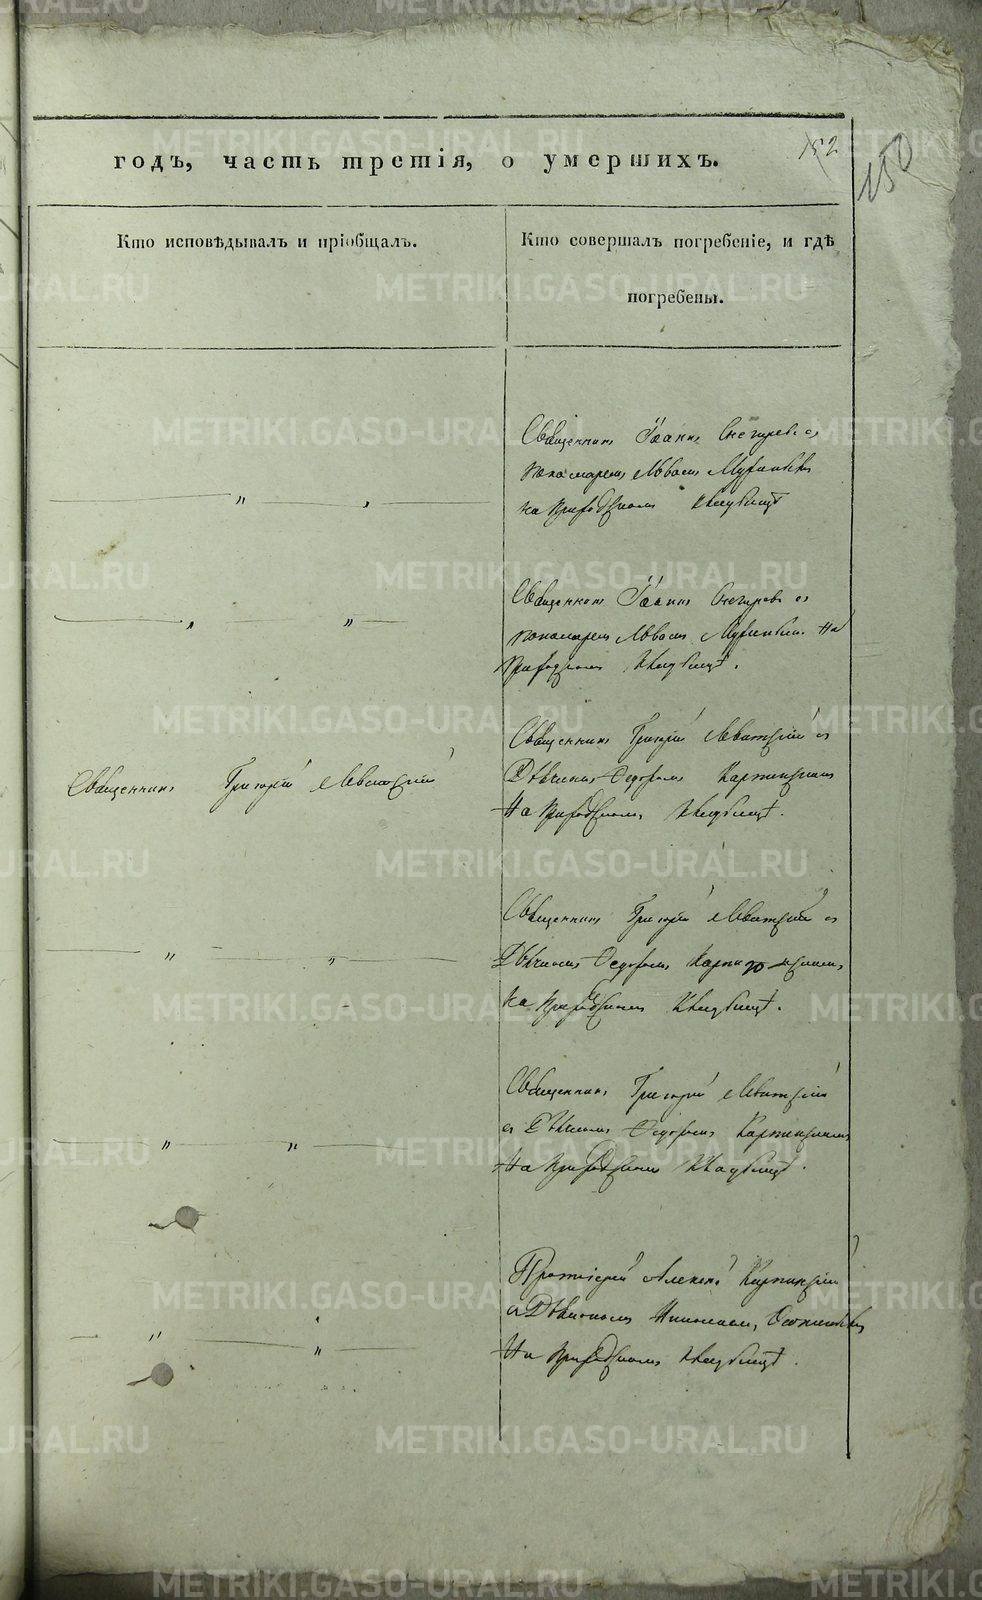 годъ, часть третія, о умершихъ.
152
150
Кто исповѣдывалъ и пріобщалъ.
Кто совершалъ погребеніе, и гдѣ
погребены.
Священникъ Іоаннъ Снегиревъ съ
пономаремъ Львомъ
на приходскомъ кладбищѣ
Священникъ Іоаннъ Снегиревъ съ
пономаремъ Львомъ На
приходскомъ кладбищѣ.
Священникъ Григорій Левитскій
Священникъ Григорій Левитскій съ
Дьячкомъ Федоромъ Карпинскимъ
На приходскомъ кладбищѣ.
Священникъ Григорій Левитскій съ
Дьячкомъ Федоромъ Карпинскимъ
на приходскомъ кладбищѣ.
Священникъ Григорій Левитскій
съ Дьячкомъ Федоромъ Карпинскимъ
На приходскомъ кладбищѣ.
Протоіерей Алексѣй Карпинскій
съ Дьякономъ Николаемъ
На приходскомъ кладбищѣ.
METRIKI.GASO-URAL.RU